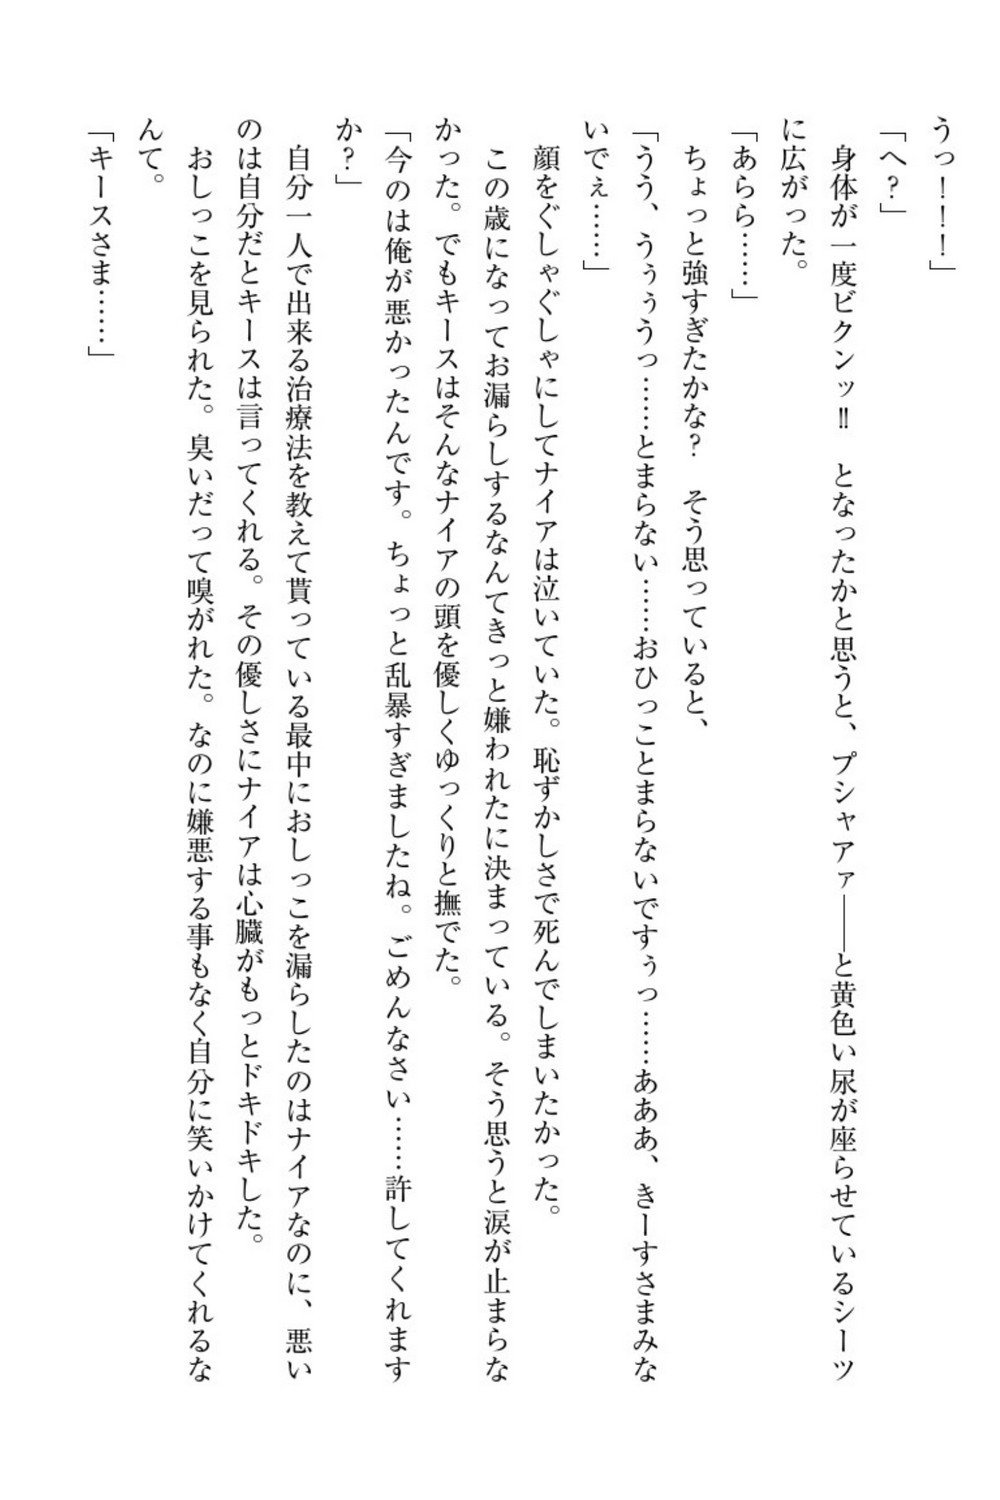 うっ！！！」
「へ？」
　身体が一度ビクンッ‼　となったかと思うと、プシャアァ――と黄色い尿が座らせているシーツ
に広がった。
「あらら……」
　ちょっと強すぎたかな？　そう思っていると、
「うう、うぅぅうっ……とまらない……おひっことまらないですぅっ……あああ、きーすさまみな
いでぇ……」
　顔をぐしゃぐしゃにしてナイアは泣いていた。恥ずかしさで死んでしまいたかった。
　この歳になってお漏らしするなんてきっと嫌われたに決まっている。そう思うと涙が止まらな
かった。でもキースはそんなナイアの頭を優しくゆっくりと撫でた。
「今のは俺が悪かったんです。ちょっと乱暴すぎましたね。ごめんなさい……許してくれます
か？」
　自分一人で出来る治療法を教えて貰っている最中におしっこを漏らしたのはナイアなのに、悪い
のは自分だとキースは言ってくれる。その優しさにナイアは心臓がもっとドキドキした。
　おしっこを見られた。臭いだって嗅がれた。なのに嫌悪する事もなく自分に笑いかけてくれるな
んて。
「キースさま……」